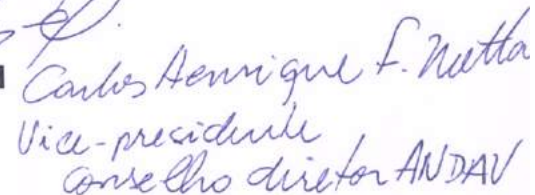 Carlos Henrique F. Nutta
Vice-presidente
Conselho diretor ANDAV